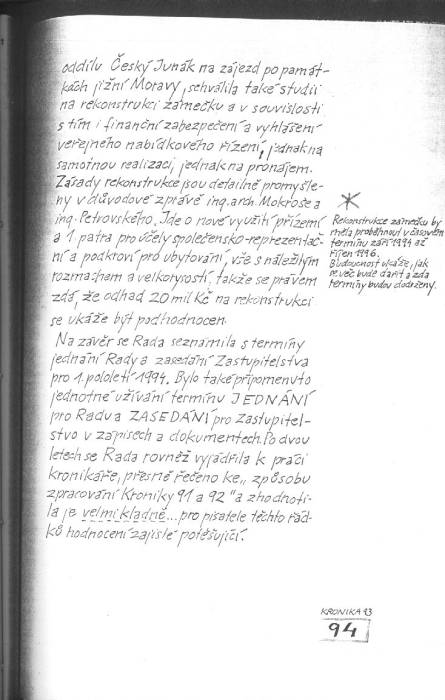 oddílu Český Junák na zájezd po památ-
kách jižní Moravy, schválila také studii
na rekonstrukci zámečku a v souvislosti
s tím i finanční zabezpečení a vyhlášení
veřejného nabídkového řízení, jednak na
samotnou realizaci, jednak na pronájem.
Zásady rekonstrukce jsou detailně promyšle-
ny v důvodové zprávě ing. arch. Mokroše a
ing. Petrovského. Jde o nové využití přízemí
a 1. patra pro účely společensko-reprezentač-
ní a podkroví pro ubytování, vše s náležitým
rozmachem a velkorysostí, takže se právem
zdá, že odhad 20 mil Kč na rekonstrukci
se ukáže být podhodnocen.
Na závěr se Rada seznámila s termíny
jednání Rady a zasedání Zastupitelstva
pro 1. pololetí 1994. Bylo také připomenuto
jednotné užívání termínu JEDNÁNÍ
pro Radu a ZASEDÁNÍ pro Zastupitel-
stvo v zápisech a dokumentech. Po dvou
letech se Rada rovněž vyjádřila k práci
kronikáře, přesně řečeno ke „způsobu
zpracování Kroniky 91 a 92" a zhodnoti-
la je velmi kladně... pro pisatele těchto řád-
ků hodnocení zajisté potěšující.
*
Rekonstrukce zámečku by
měla proběhnout v časovém
termínu září 1994 až
říjen 1996.
Budoucnost ukáže, jak
se věc bude dařit a zda
termíny budou dodrženy.
KRONIKA 93
94